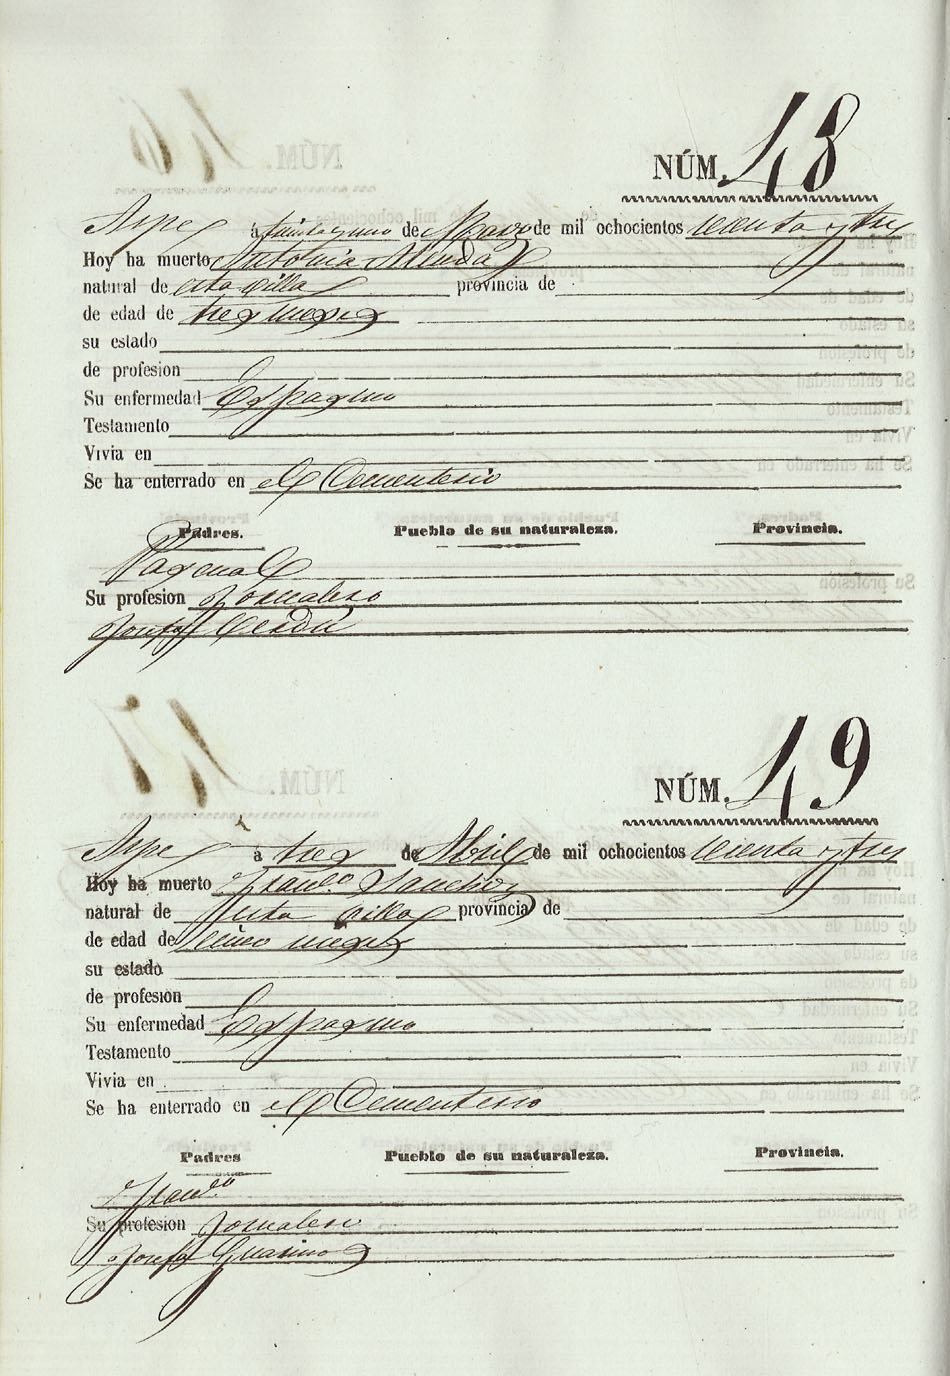 NÚM. 48
Aspe á treinta y uno de Marzo de mil ochocientos sesenta y tres
Hoy ha muerto Antonia
natural de esta villa provincia de
de edad de tres meses
su estado
de profesion
Su enfermedad Espasmo
Testamento
Vivia en
Se ha enterrado en el Cementerio
Padres. Pueblo de su naturaleza. Provincia.
Pascual
Su profesion Jornalero
Josefa Cerdá
NÚM. 49
Aspe á tres de Abril de mil ochocientos sesenta y tres
Hoy ha muerto Franco. Sanchez
natural de esta villa provincia de
de edad de cinco meses
su estado
de profesion
Su enfermedad Espasmo
Testamento
Vivia en
Se ha enterrado en el Cementerio
Padres Pueblo de su naturaleza. Provincia.
Franco.
Su profesion Jornalero
Josefa